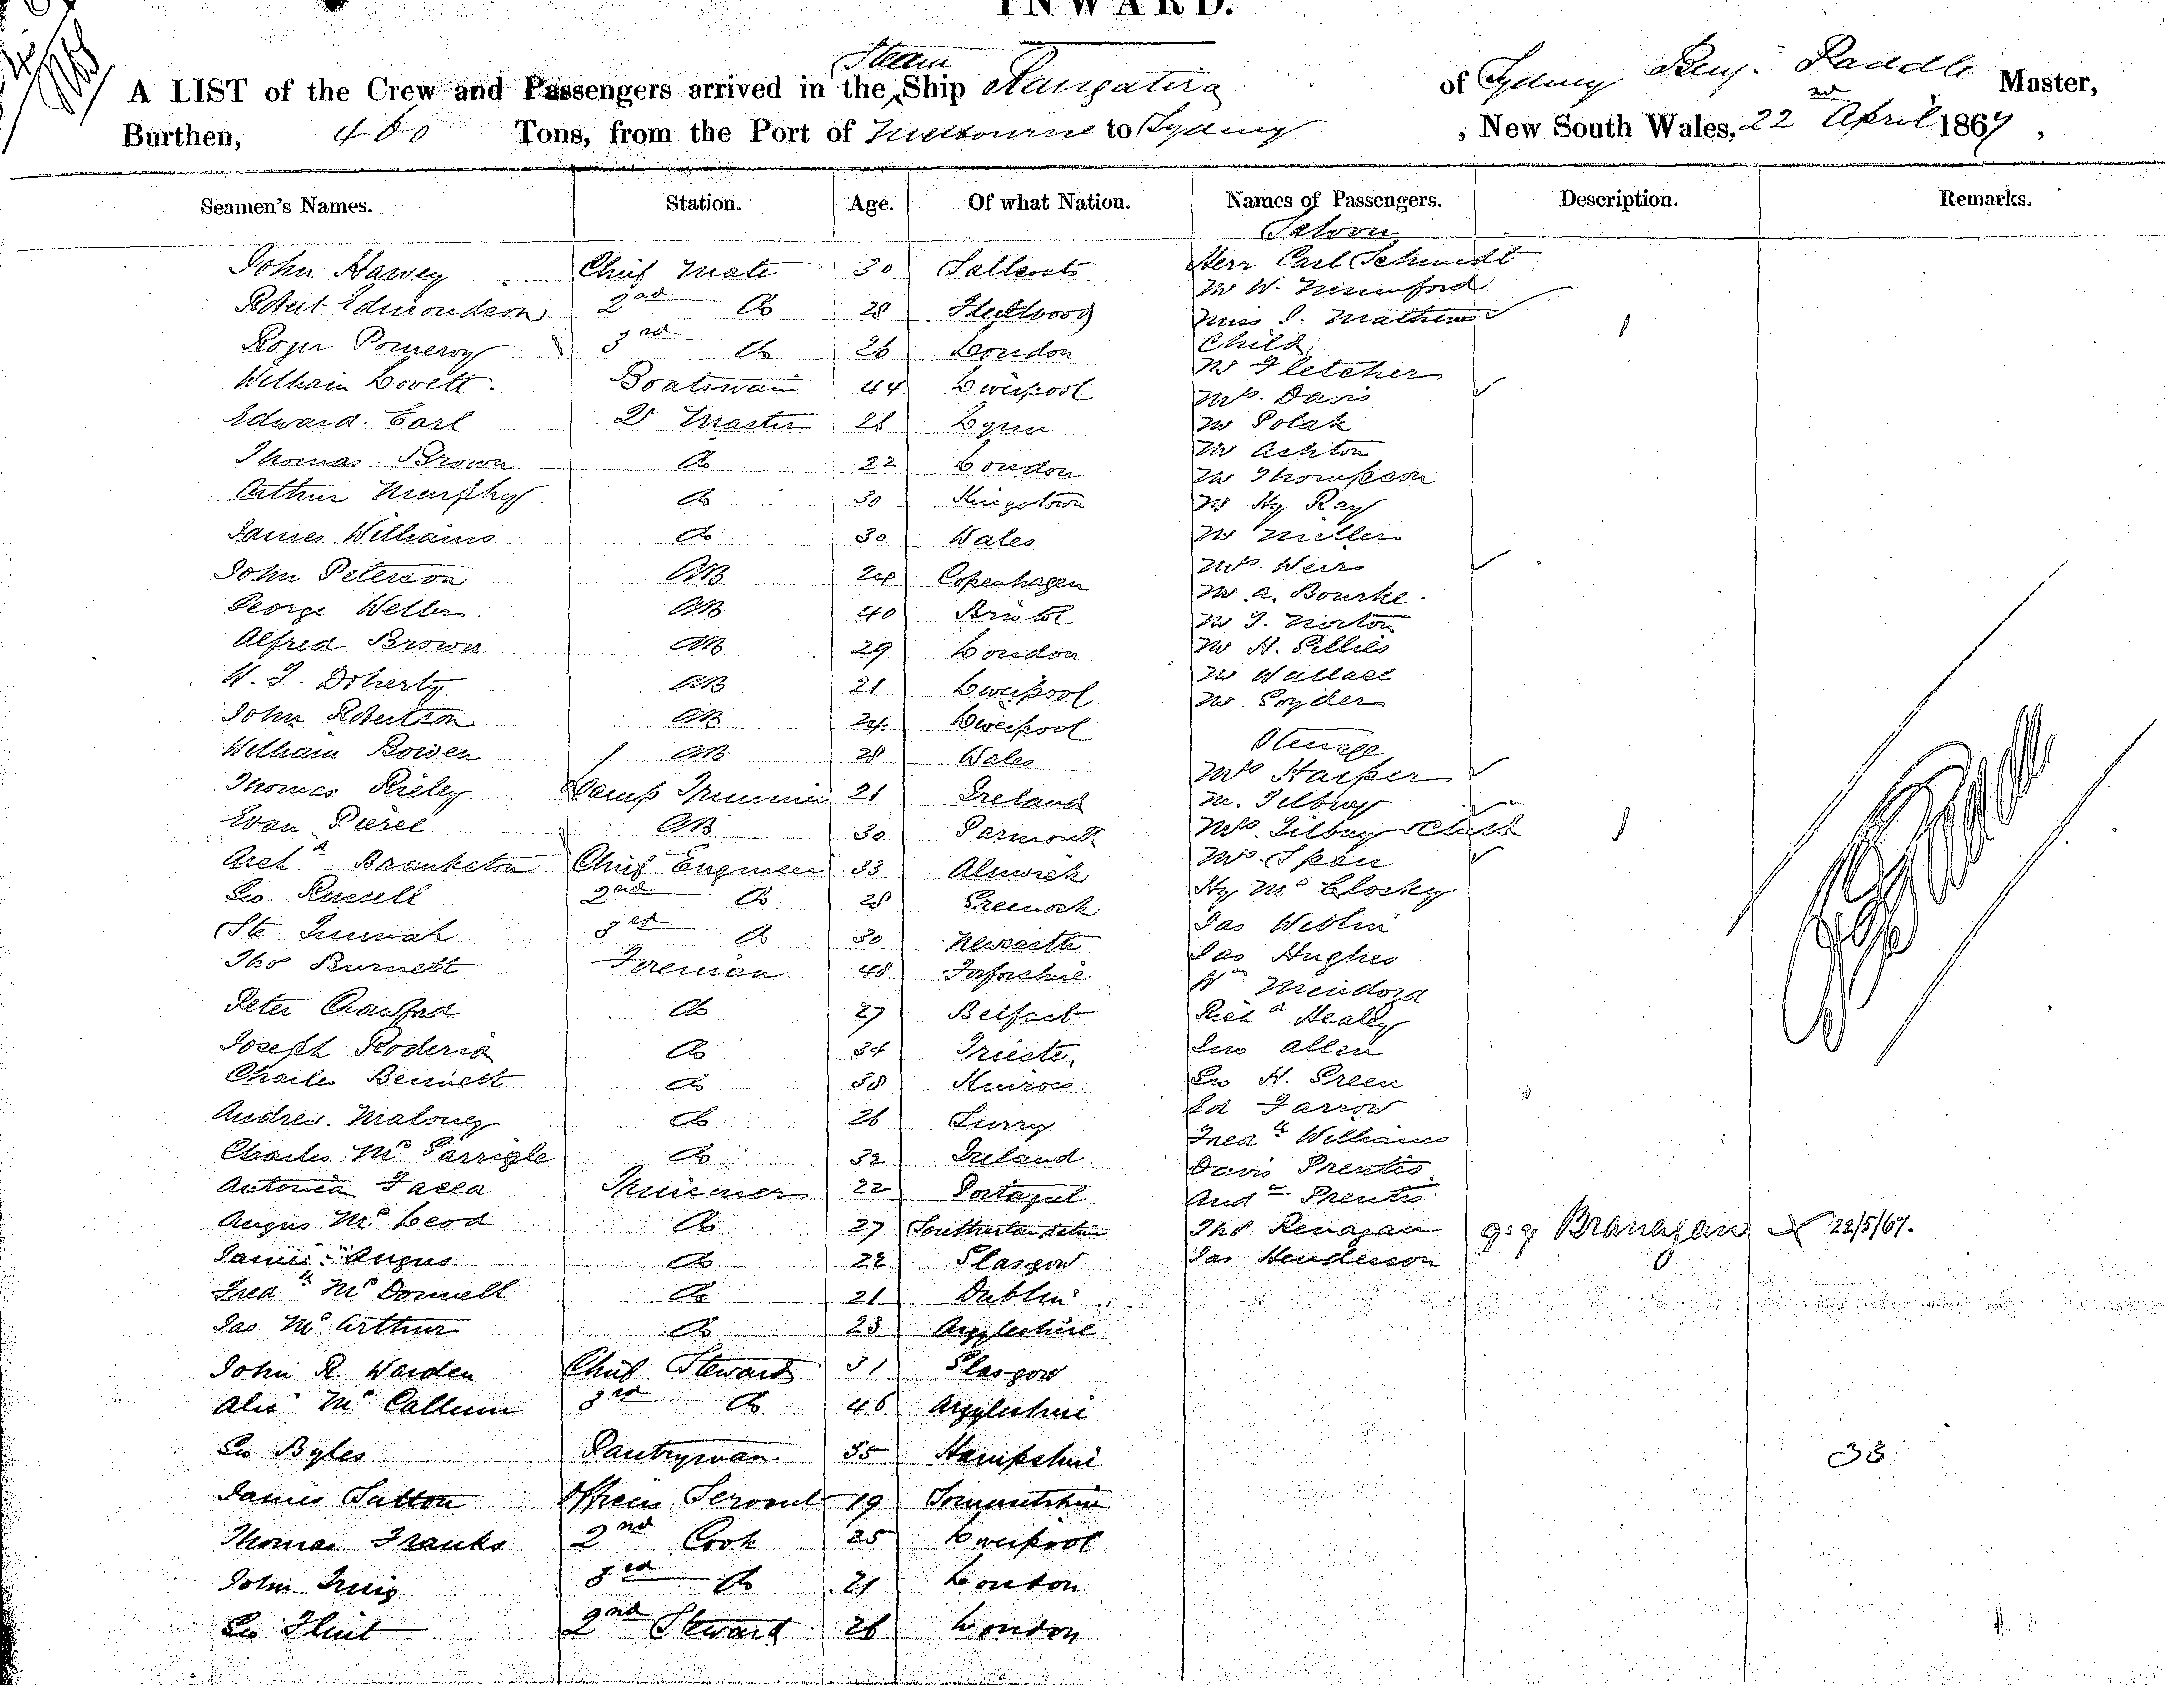 INWARD.
Steam
A LIST of the Crew and Passengers arrived in the Ship Rangatira of Sydney Benj. Paddle Master,
Burthen, 460 Tons, from the Port of Melbourne to Sydney, New South Wales, 22nd April 1867,
Seamen's Names. Station. Age. Of what Nation. Names of Passengers. Description. Remarks.
Saloon
John Harvey Chief Mate 30 Saltcoats Herr Carl Schmidt
Mr W.
Robert Edmondson 2nd Do 28 Fleetwood Miss I. Mathews
Roger Pomeroy 3rd Do 26 London Child
William Lovett Boatswain 44 Liverpool Mr Fletcher
Mrs. Davis
Edward Earl Qr Master 28 Lynn Mr Polak
Thomas Brown Do 22 London Mr Ashton
Mr Thompson
Arthur Murphy Do 30 Kingstown Mr Hy Ray
James Williams Do 30 Wales Mr Miller
John Peterson AB 24 Copenhagen Mrs. Weir
George Weller AB 40 Bristol Mr A. Bourke
Mr J. Norton
Alfred Brown AB 29 London Mr H. Gillies
W. J. Doherty AB 21 Liverpool Mr Wallace
John Robertson AB 24 Liverpool Mr Snyder
William Bowen AB 28 Wales Steerage
Thomas Rieley Lamp Trimmer 21 Ireland Mrs Harper
M. Tilbury
Evan AB 30 Mrs. Tilbury & Child
Archd Brankston Chief Engineer 33 Alnwick Mrs.
Geo Russell 2nd Do 28 Greenock Hy McClosky
3rd Do 30 Newcastle Jas
Thos Burnett Fireman 48 Forfarshire Jas Hughes
Wm
Peter Do 27 Belfast Richd Healey
Joseph Do 34 Trieste Jno Allen
Charles Bennett Do 38 Geo H. Green
Andrew Maloney Do 26 Surry Ed Farrow
Charles McGarrigle Do 32 Ireland Fredk Williams
Davis Prentis
Trimmer 22 Portugal Andw Prentis
Angus McLeod Do 27 Thos Renagan q:y Branagan 22/5/67.
James Angus Do 22 Glasgow Jas Henderson
Fredk McDonnell Do 21 Dublin
Jas McArthur Do 23 Argyleshire
John R. Warden Chief Steward 31 Glasgow
Alex McCallum 3rd Do 46 Argyleshire
Geo Byles Pantryman 35 Hampshire 38
James Sutton Officers Servant 19 Somersetshire
Thomas Franks 2nd Cook 25 Liverpool
John 3rd Do 21 London
Geo Flint 2nd Steward 26 London